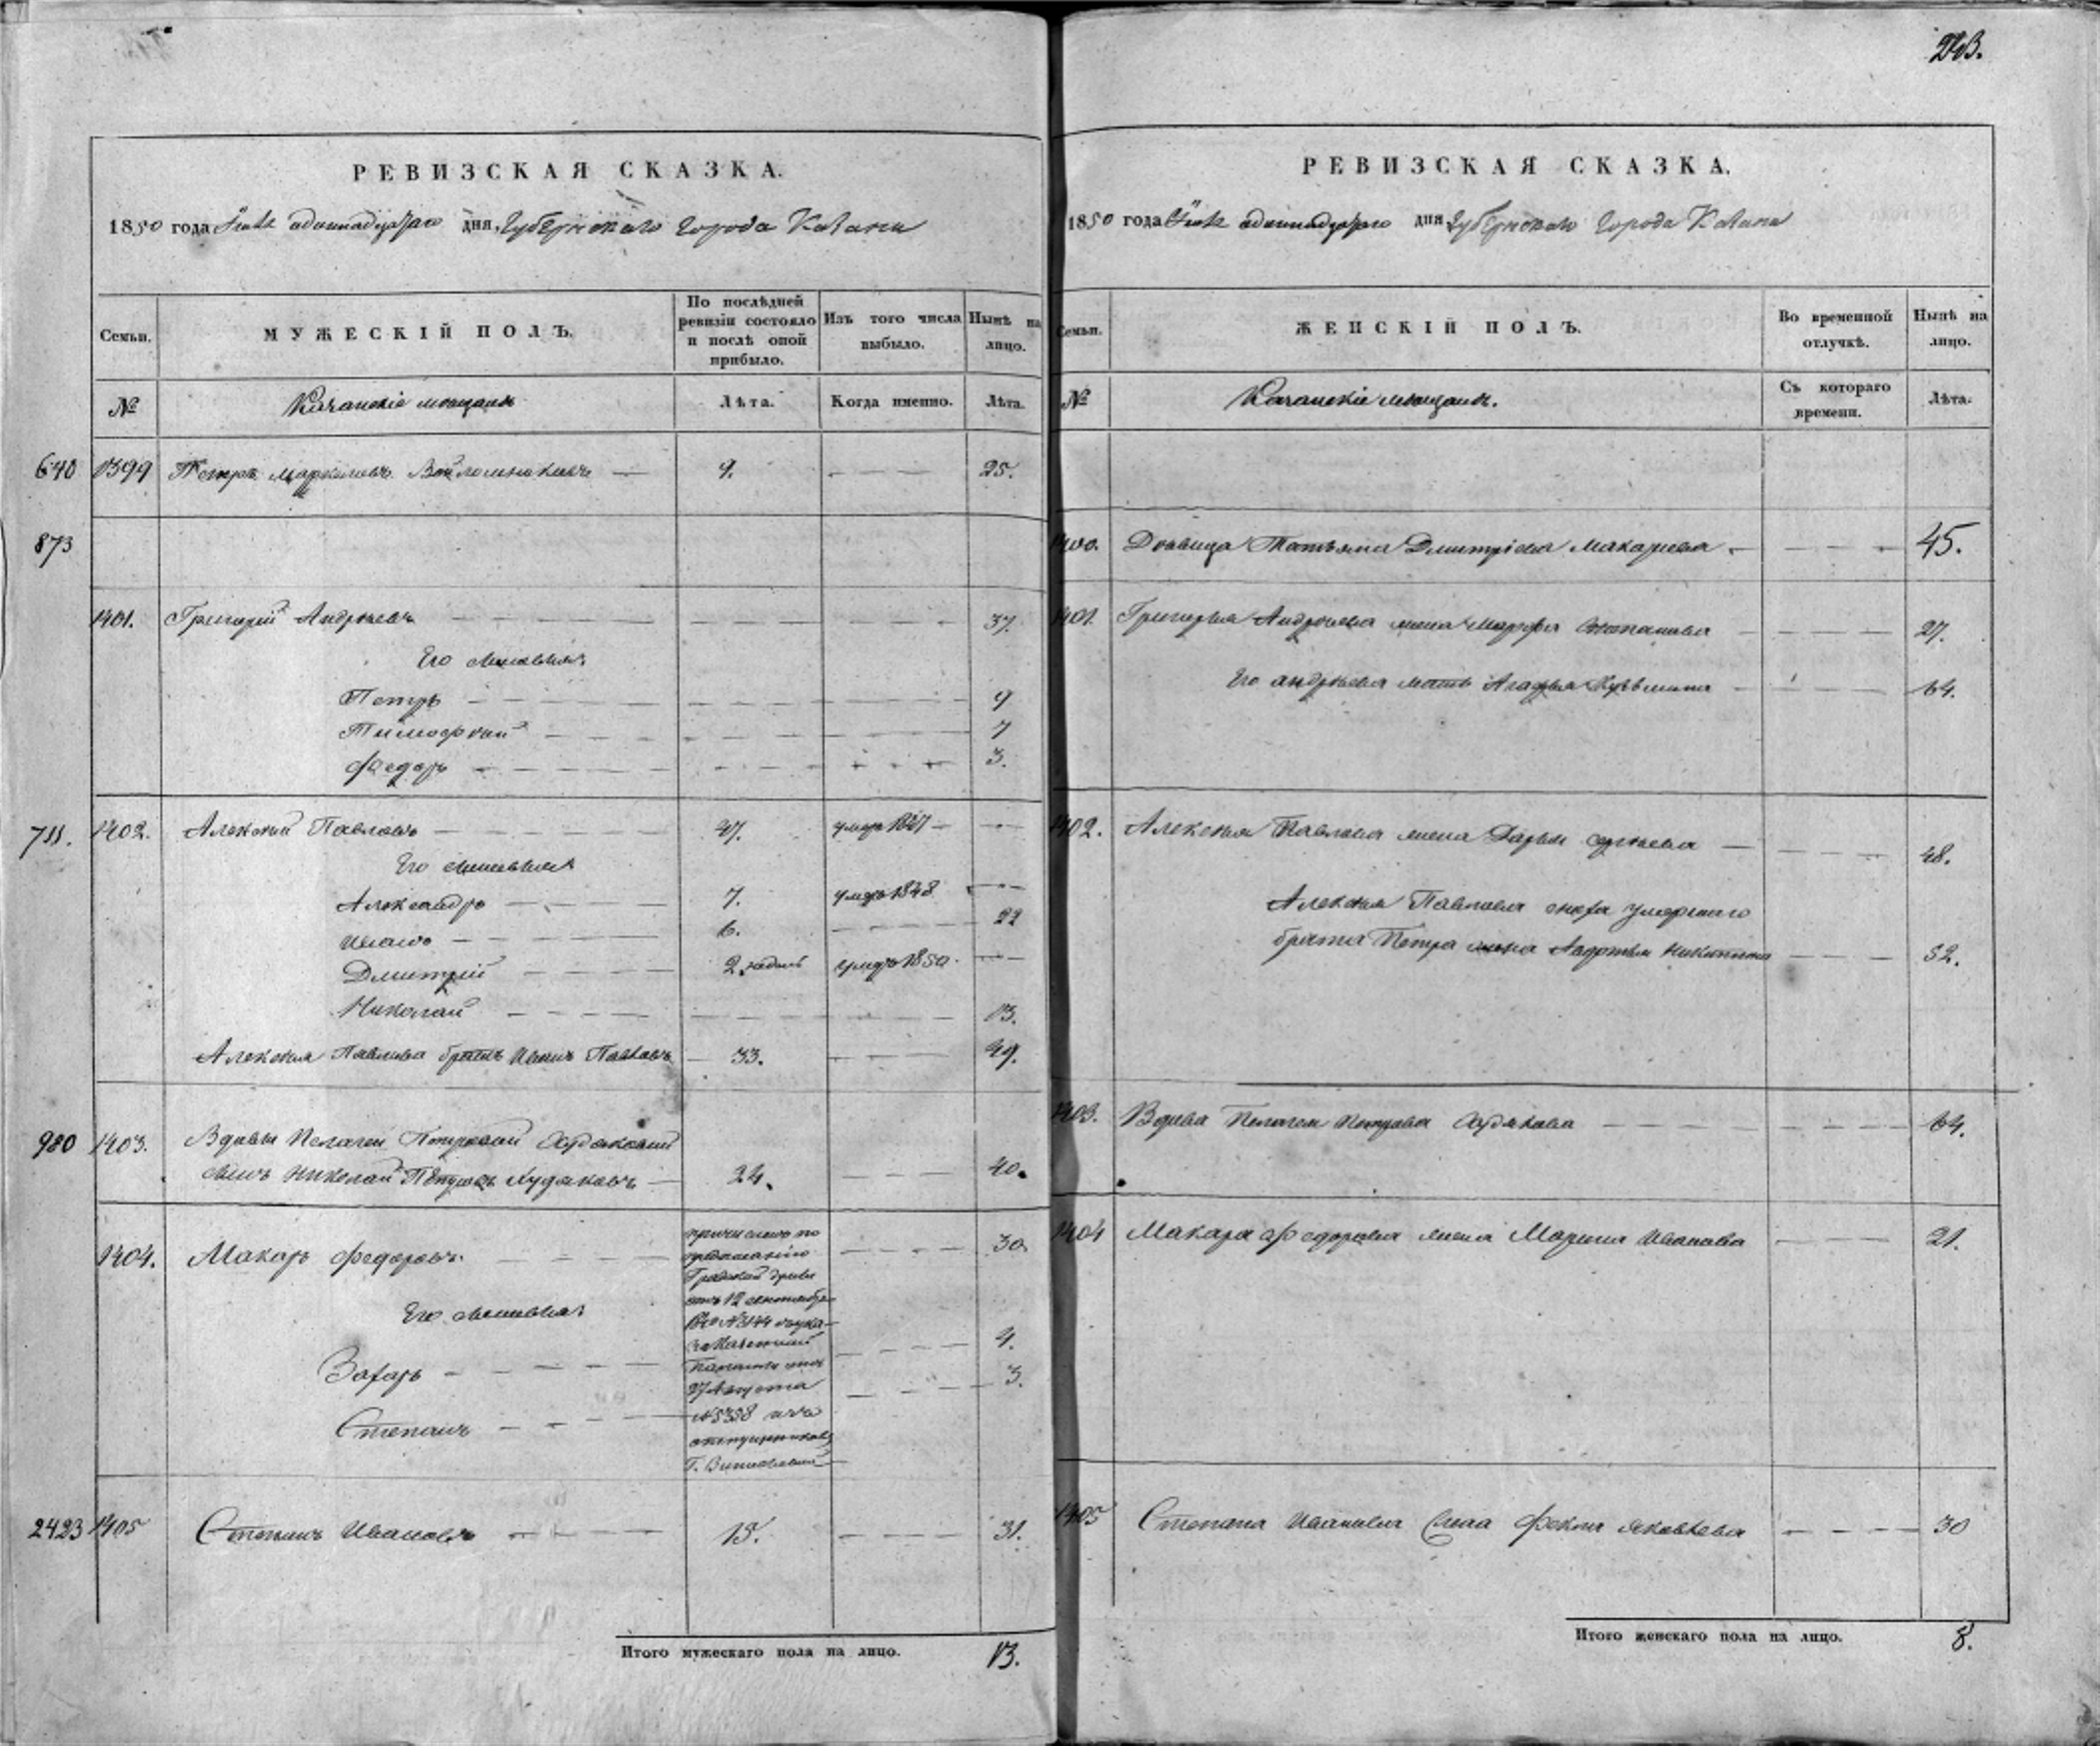 243.
РЕВИЗСКАЯ СКАЗКА.
1850 года Іюля одиннадцатаго дня, Губернскаго города Казани
Семьи.
МУЖЕСКІЙ ПОЛЪ.
По послѣдней ревизіи состояло и послѣ оной прибыло.
Изъ того числа выбыло.
Нынѣ на лицо.
№
Казанскіе мещане
Лѣта.
Когда именно.
Лѣта.
640 1399 Петръ 9. — 25.
873
1401. Григорій Андреевъ — 37.
Его сыновья:
Петръ — 9
Тимофей — 7
Федоръ — 3.
711. 1402. Алексей Павловъ — 47. умеръ 1847 —
Его сыновья
Александръ — 7. умеръ 1848 —
Иванъ — 6. — 22
Дмитрій — 2. недель умеръ 1850. —
Николай — 13.
Алексея Павлова братъ Иванъ Павловъ — 33. — 49.
980 1403. Вдовы Пелагеи Петровой Худяковой
сынъ Николай Петровъ Худяковъ — 24. — 40.
1404. Макаръ Федоровъ — 30.
Его сыновья:
Захаръ — 4.
Степанъ — 3.
причисленъ по
предписанію
Градской Думы
отъ 12 сентября
Палаты отъ
27 Августа
№5338 изъ
2423 1405 Степанъ Ивановъ — 15. — 31.
Итого мужескаго пола на лицо. 13.
РЕВИЗСКАЯ СКАЗКА.
1850 года Іюля одиннадцатаго дня Губернскаго города Казани
Семьи.
ЖЕНСКІЙ ПОЛЪ.
Во временной отлучкѣ.
Нынѣ на лицо.
№
Казанскіе мещане.
Съ котораго времени.
Лѣта.
1400. Девица Татьяна Дмитріева Макарова — 45.
1401. Григорья Андреева жена Марфа Степанова — 27.
Его андреева мать Агафья Кузьмина — 64.
1402. Алексея Павлова жена Дарья Сергеева — 48.
Алексея Павлова умершаго
брата Петра жена Авдотья Никитина — 52.
1403. Вдова Пелагея Петрова Худякова — 64.
1404 Макара Федорова жена Марья Иванова — 21.
1405 Степана Иванова жена Фекла Яковлева — 30
Итого женскаго пола на лицо. 8.